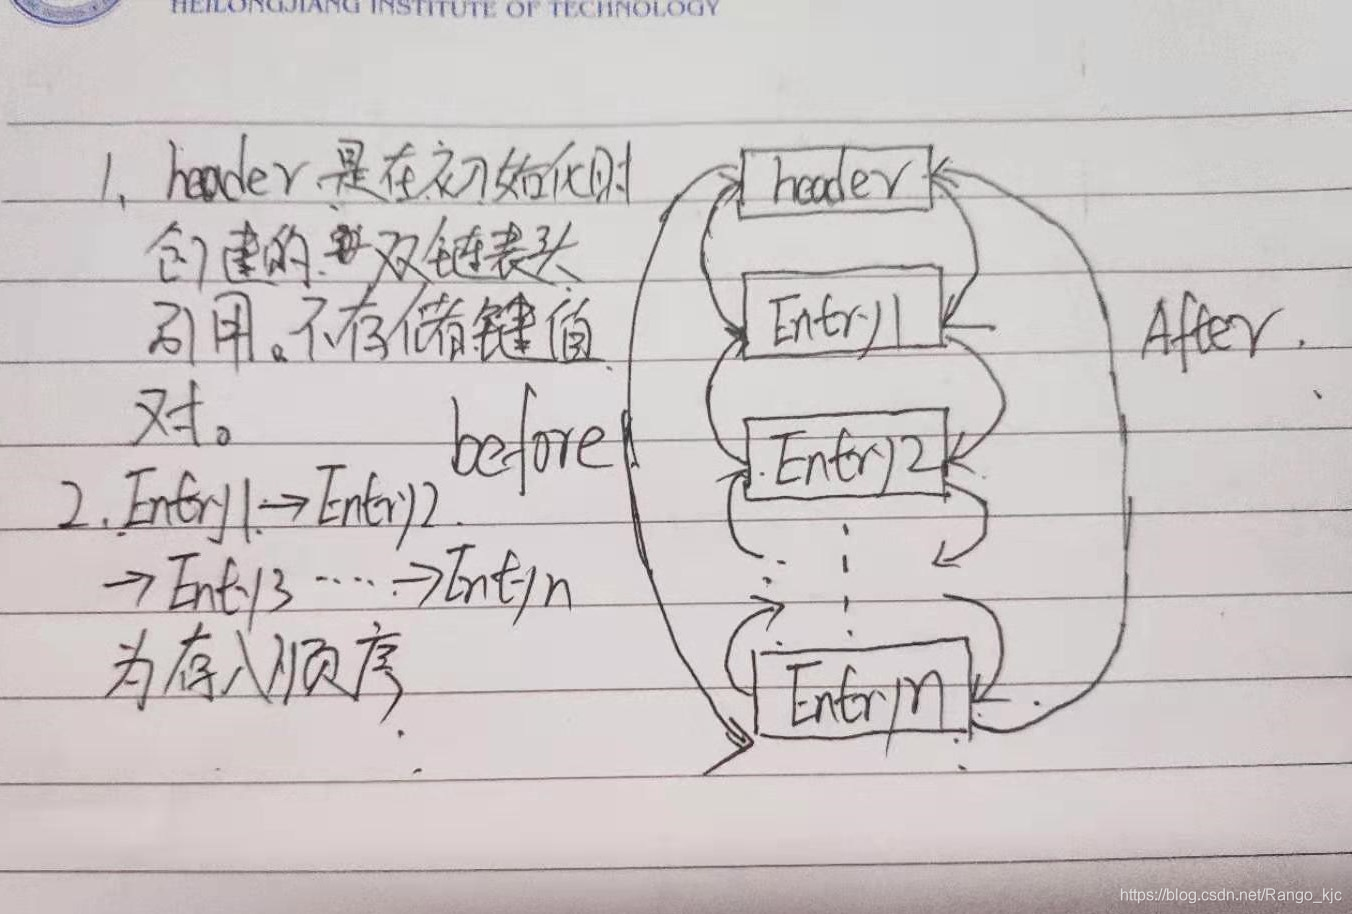 HEILONGJIANG INSTITUTE OF TECHNOLOGY
1. header 是在初始化时
创建的 双链表头
引用。不存储键值
对。
2. Entry1→Entry2
→Entry3 ····→Entryn
为存入顺序
before
header
Entry1
Entry2
Entryn
After.
https://blog.csdn.net/Rango_kjc